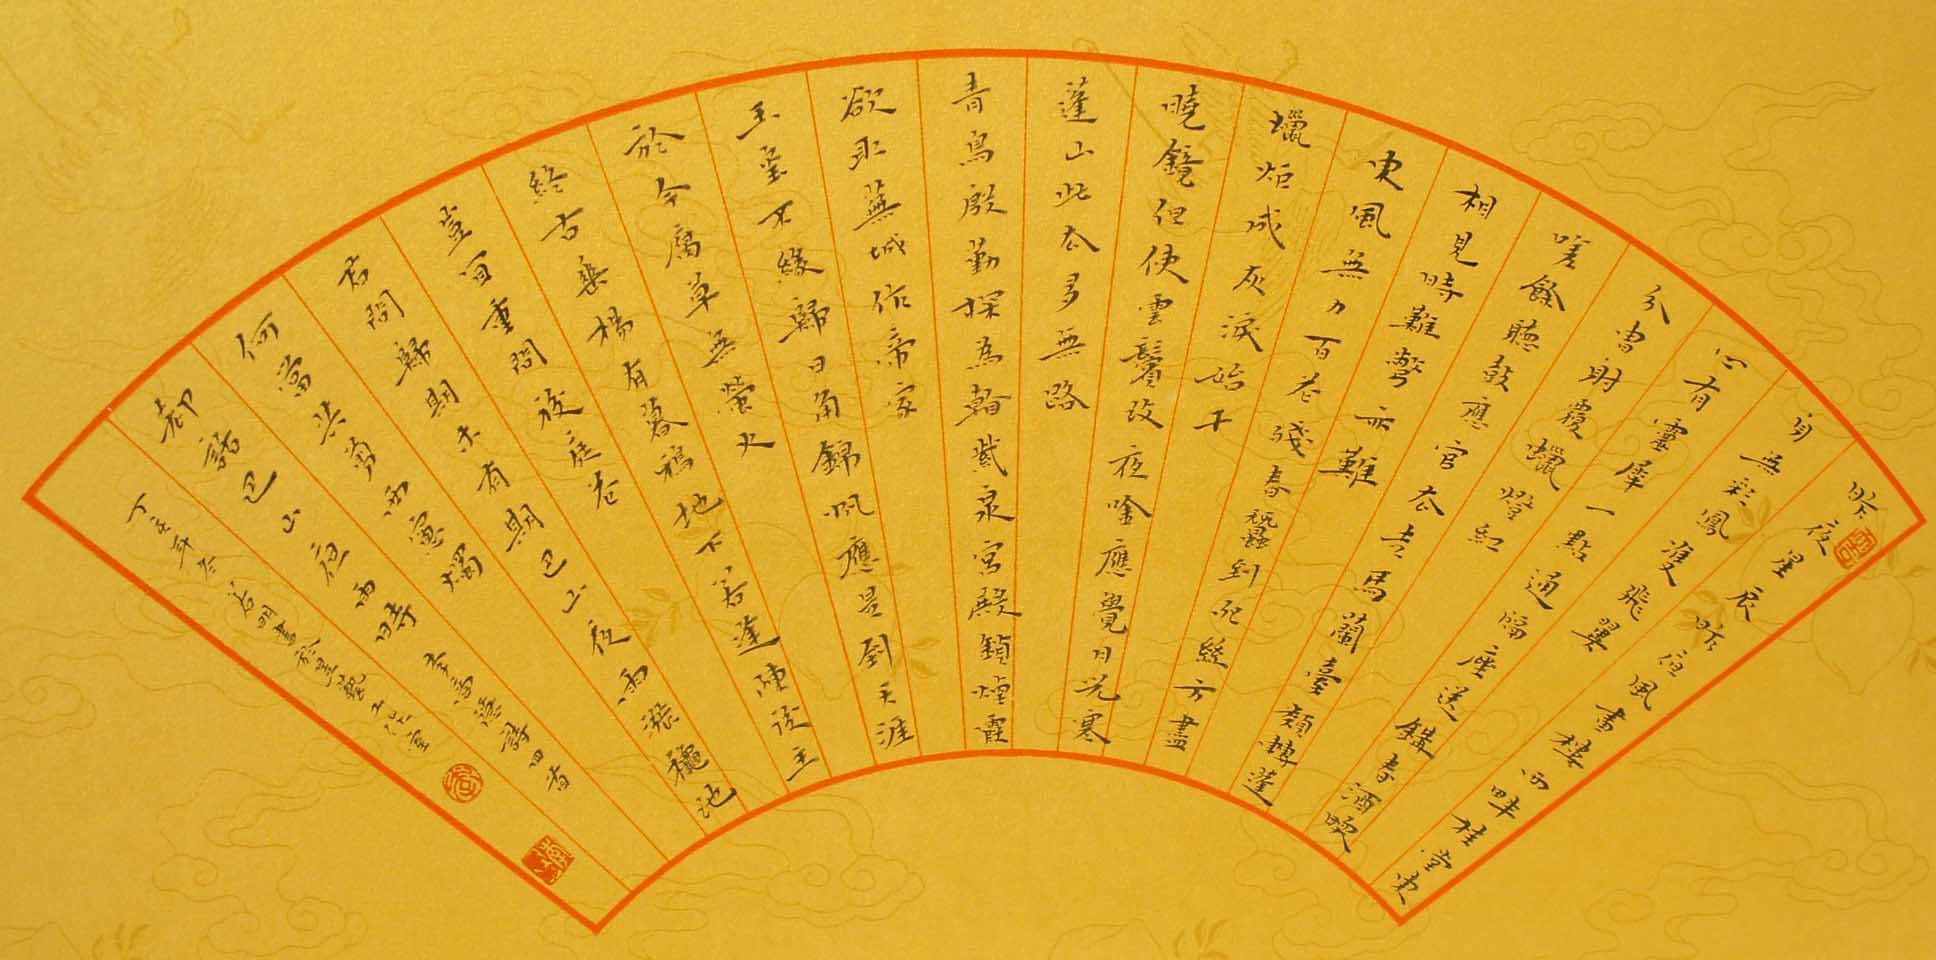 昨夜星辰昨夜風畫樓西畔桂堂東
身無彩鳳雙飛翼
心有靈犀一點通隔座送鉤春酒暖
分曹射覆蠟燈紅
嗟餘聽鼓應官去走馬蘭臺類轉蓬
相見時難彆亦難
東風無力百花殘春蠶到死絲方盡
蠟炬成灰淚始干
曉鏡但使雲鬢改夜吟應覺月光寒
蓬山此去多無路
青鳥殷勤探為看紫泉宮殿鎖煙霞
欲取蕪城作帝家
玉璽不緣歸日角錦帆應是到天涯
於今腐草無螢火
終古垂楊有暮鴉地下若逢陳後主
豈宜重問後庭花
君問歸期未有期巴山夜雨漲穐池
何當共剪西窗燭
卻話巴山夜雨時 李商隱詩四首
丁亥年冬 明書於墨藝工作室